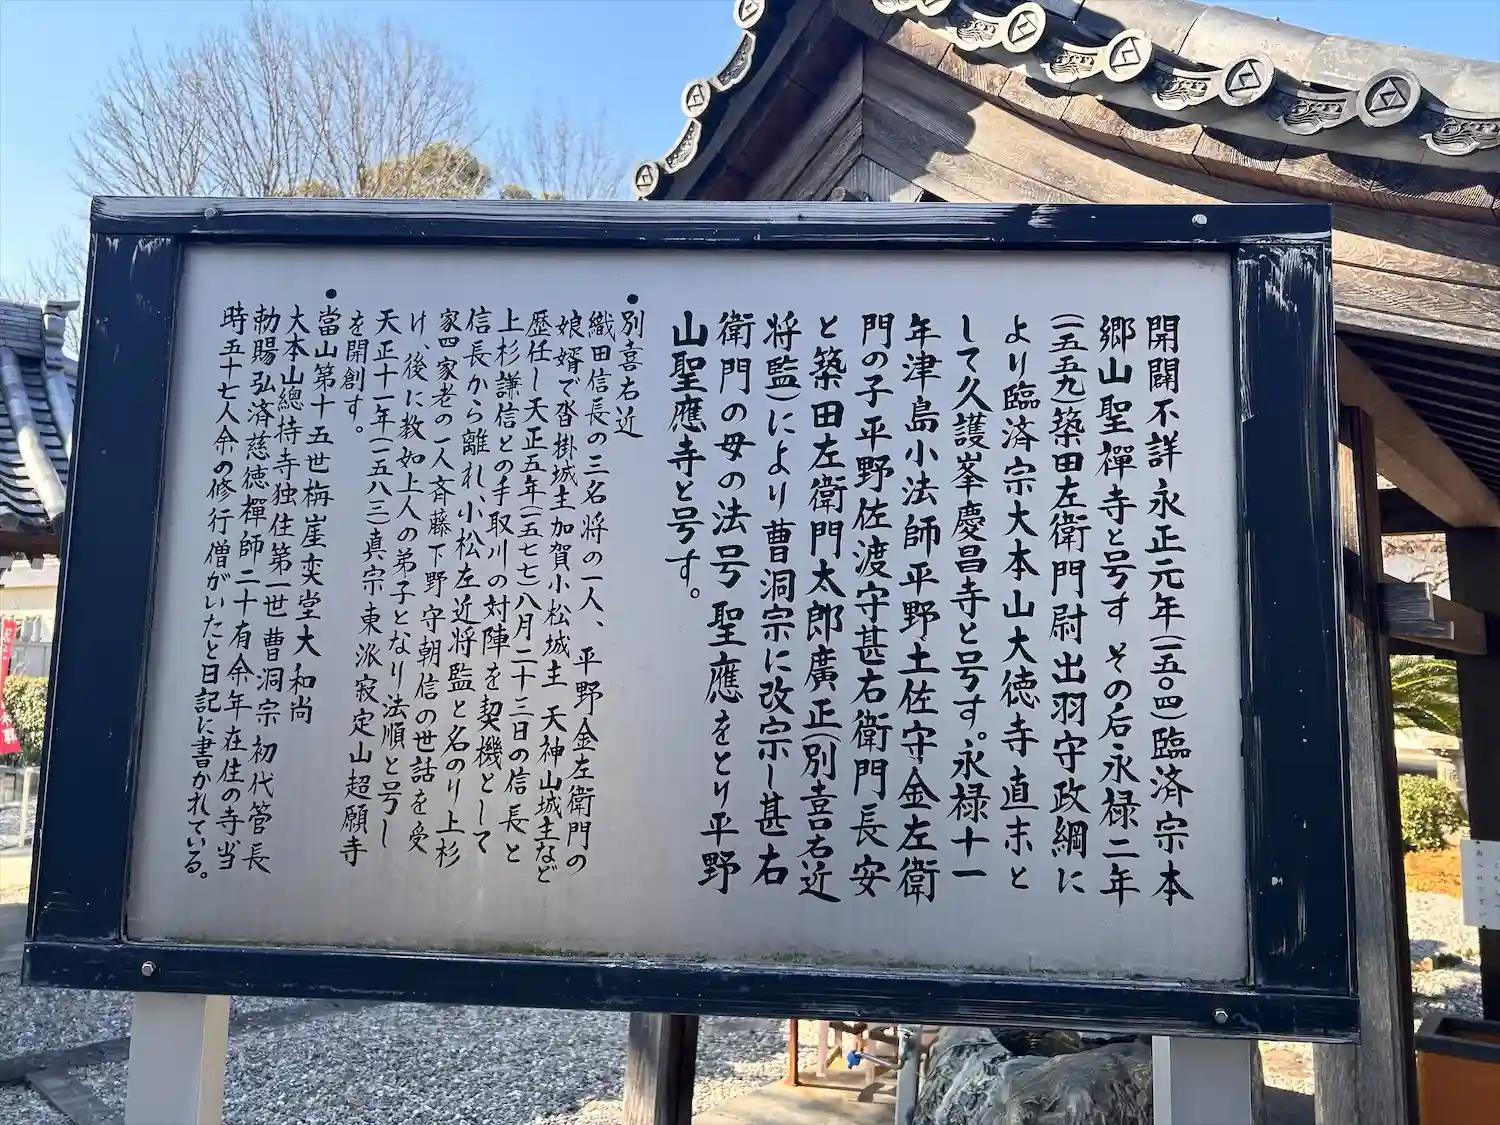 開闢不詳永正元年(一五〇四)臨済宗本
郷山聖禪寺と号す その后永禄二年
(一五五九)築田左衛門尉出羽守政綱に
より臨済宗大本山大徳寺直末と
して久護峯慶昌寺と号す。永禄十一
年津島小法師平野土佐守金左衛
門の子平野佐渡守甚右衛門長安
と築田左衛門太郎廣正(別喜右近
将監)により曹洞宗に改宗し甚右
衛門の母の法号聖應をとり平野
山聖應寺と号す。
●別喜右近
織田信長の三名将の一人、平野金左衛門の
娘婿で沓掛城主加賀小松城主 天神山城主など
歴任し天正五年(一五七七)八月二十三日の信長と
上杉謙信との手取川の対陣を契機として
信長から離れ、小松左近将監と名のり上杉
家四家老の一人斉藤下野守朝信の世話を受
け、後に教如上人の弟子となり法順と号し
天正十一年(一五八三)真宗東派寂定山超願寺
を開創す。
●當山第十五世梅崖奕堂大和尚
大本山總持寺独住第一世曹洞宗初代管長
勅賜弘済慈徳禪師二十有余年在住の寺当
時五十七人余の修行僧がいたと日記に書かれている。